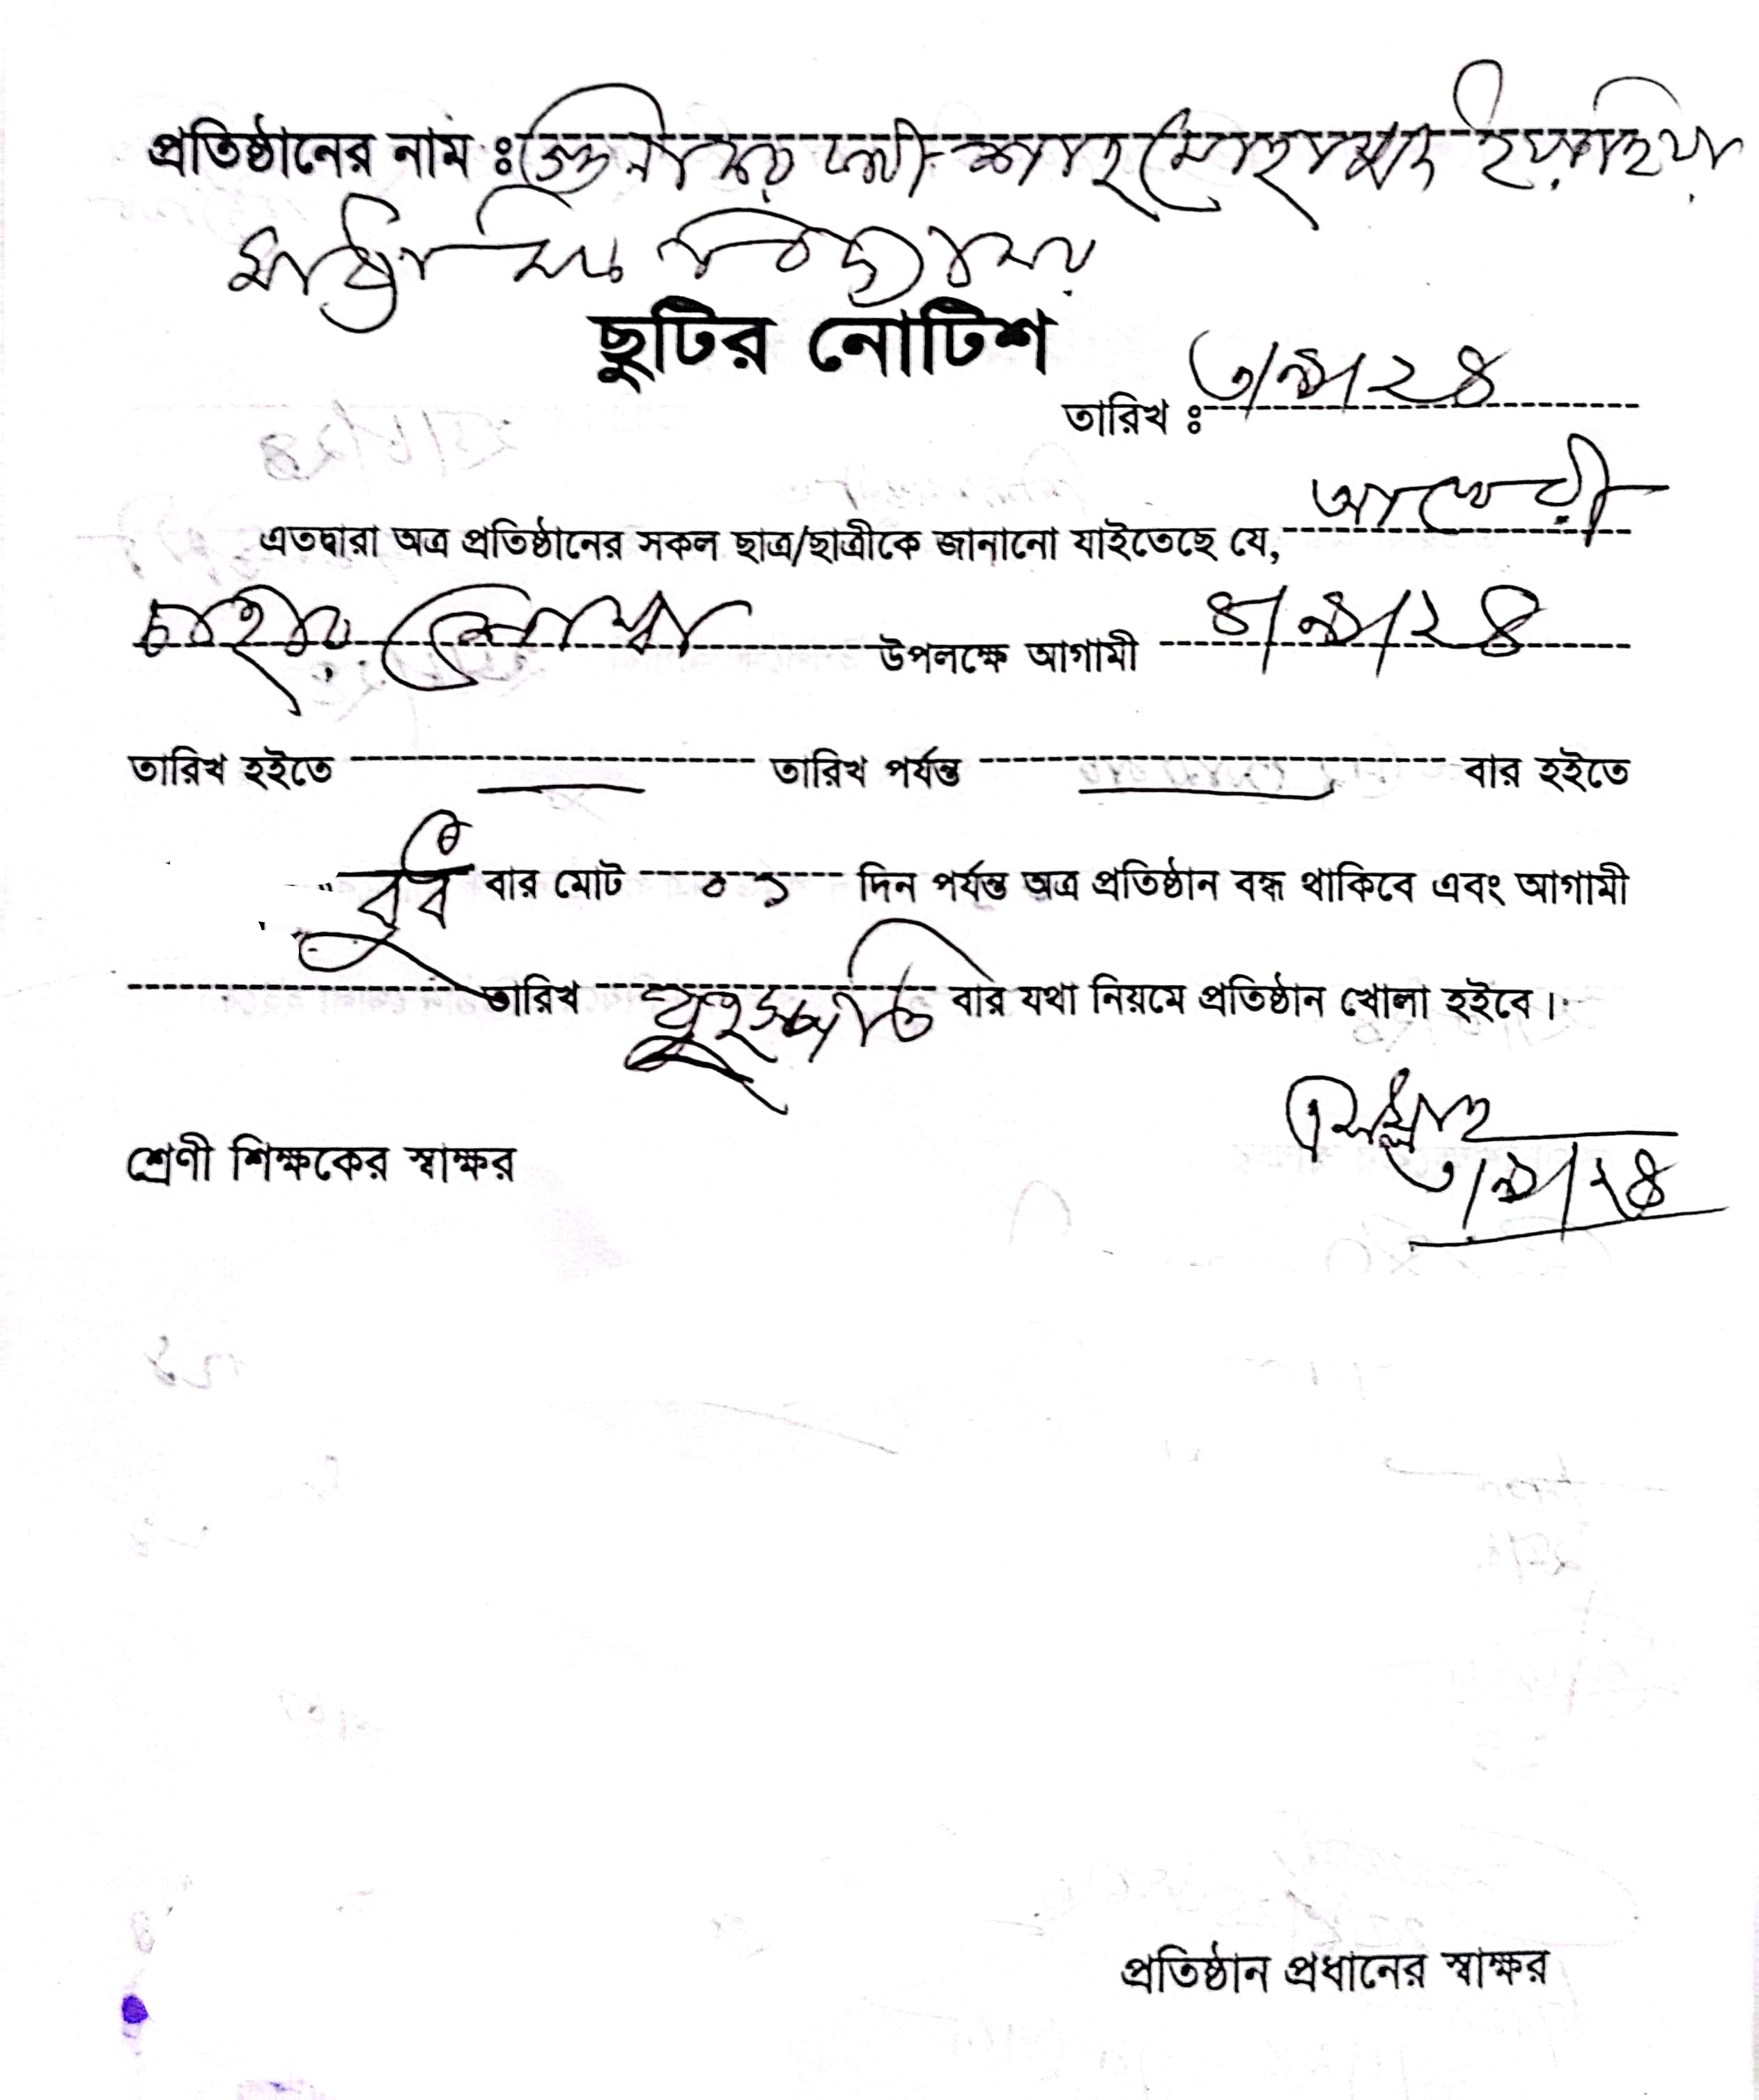 প্রতিষ্ঠানের নাম ঃ
মাধ্যমিক বিদ্যালয়
ছুটির নোটিশ
তারিখ ঃ ৩/৯/২৪
এতদ্বারা অত্র প্রতিষ্ঠানের সকল ছাত্র/ছাত্রীকে জানানো যাইতেছে যে, আখেরী
চাহার সোম্বা উপলক্ষে আগামী ৪/৯/২৪
তারিখ হইতে তারিখ পর্যন্ত বার হইতে
বুধ বার মোট ০১ দিন পর্যন্ত অত্র প্রতিষ্ঠান বন্ধ থাকিবে এবং আগামী
তারিখ বৃহস্পতি বার যথা নিয়মে প্রতিষ্ঠান খোলা হইবে।
শ্রেণী শিক্ষকের স্বাক্ষর ৩/৯/২৪
প্রতিষ্ঠান প্রধানের স্বাক্ষর